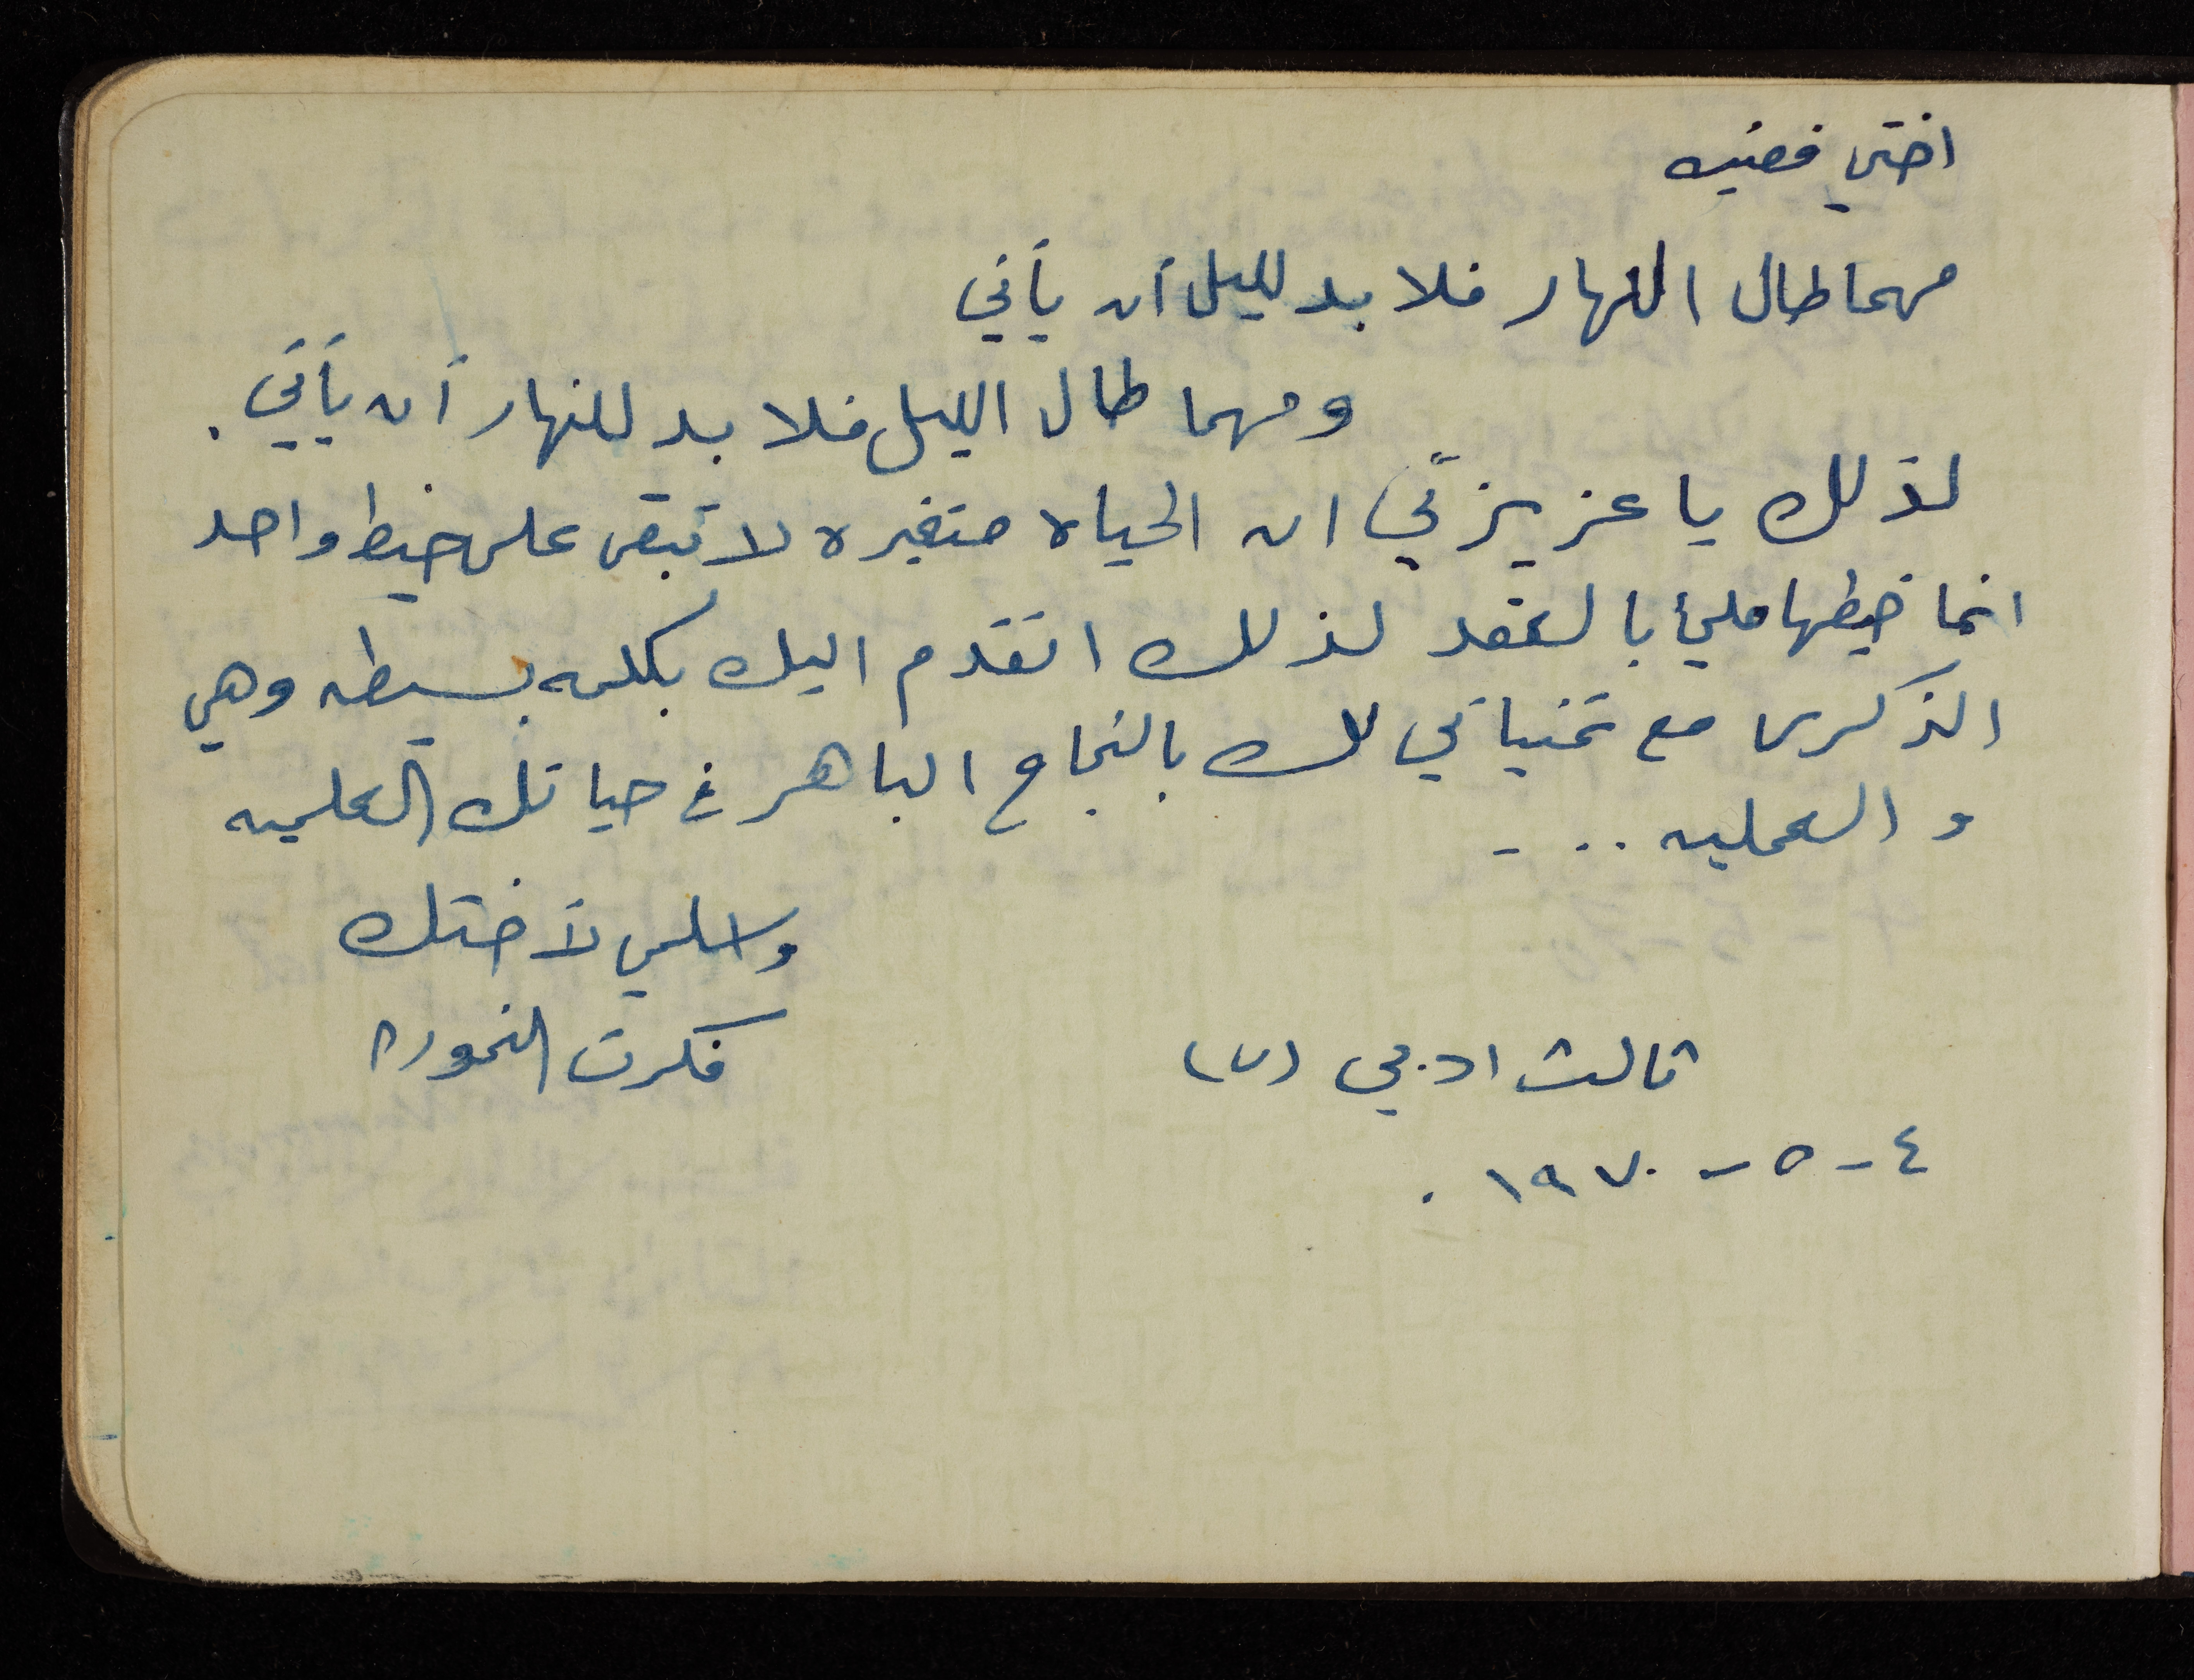 اختي فضيه
مهما طال النهار فلا بد لليل أن يأتي
ومهما طال الليل فلا بد للنهار أن يأتي.
لذلك يا عزيزتي ان الحياه متغيره لا تبقى على خيط واحد
انما خيطها مليئ بالعقد لذلك اتقدم اليك بكلمه بسيطه وهي
الذكرى مع تمنياتي لك بالنجاح الباهر في حياتك العلميه
و العمليه . . -
واسلمي لأختك
ثالث ادبي (٧) فكرت النمورة
٤ - ٥ - ١٩٧٠ .